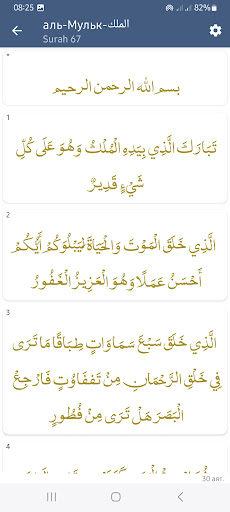 08:25
82%
аль-Мульк-الملك
Surah 67
*
بسم الله الرحمن الرحيم
1
تَبَارَكَ الَّذِي بِيَدِهِ الْمُلْكُ وَهُوَ عَلَى كُلِّ
شَيْءٍ قَدِيرٌ
2
الَّذِي خَلَقَ الْمَوْتَ وَالْحَيَاةَ لِيَبْلُوَكُمْ أَيُّكُمْ
أَحْسَنُ عَمَلًا وَهُوَ الْعَزِيزُ الْغَفُورُ
3
الَّذِي خَلَقَ سَبْعَ سَمَاوَاتٍ طِبَاقًا مَا تَرَى
فِي خَلْقِ الرَّحْمَانِ مِنْ تَفَاوُتٍ فَارْجِعْ
الْبَصَرَ هَلْ تَرَى مِنْ فُطُورٍ
4
30 аят.